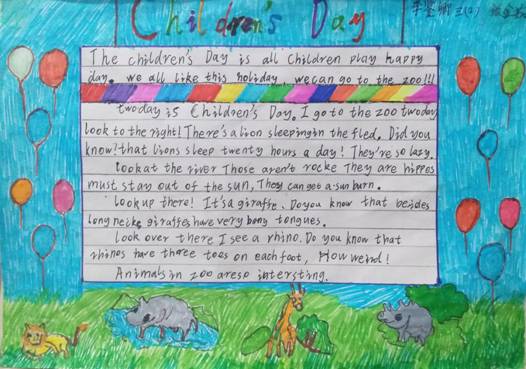 Children's Day
三(2)
The children's Day is all children play happy
day. we all like this holiday, we can go to the zoo!!!
twoday is Children's Day. I go to the zoo twoday
look to the right! There's a lion sleeping in the fled. Did you
know! that lions sleep twenty hours a day! They're so lazy.
look at the river Those aren't rocke They are hippes
must stay out of the sun, They can get a sun burn.
Look up there! It's a giraffe. Do you know that besides
long necke giraffes have very bong tongues.
Look over there I see a rhino. Do you know that
rhinos have three toes on each foot, How weird!
Animals in zoo are so intersting.